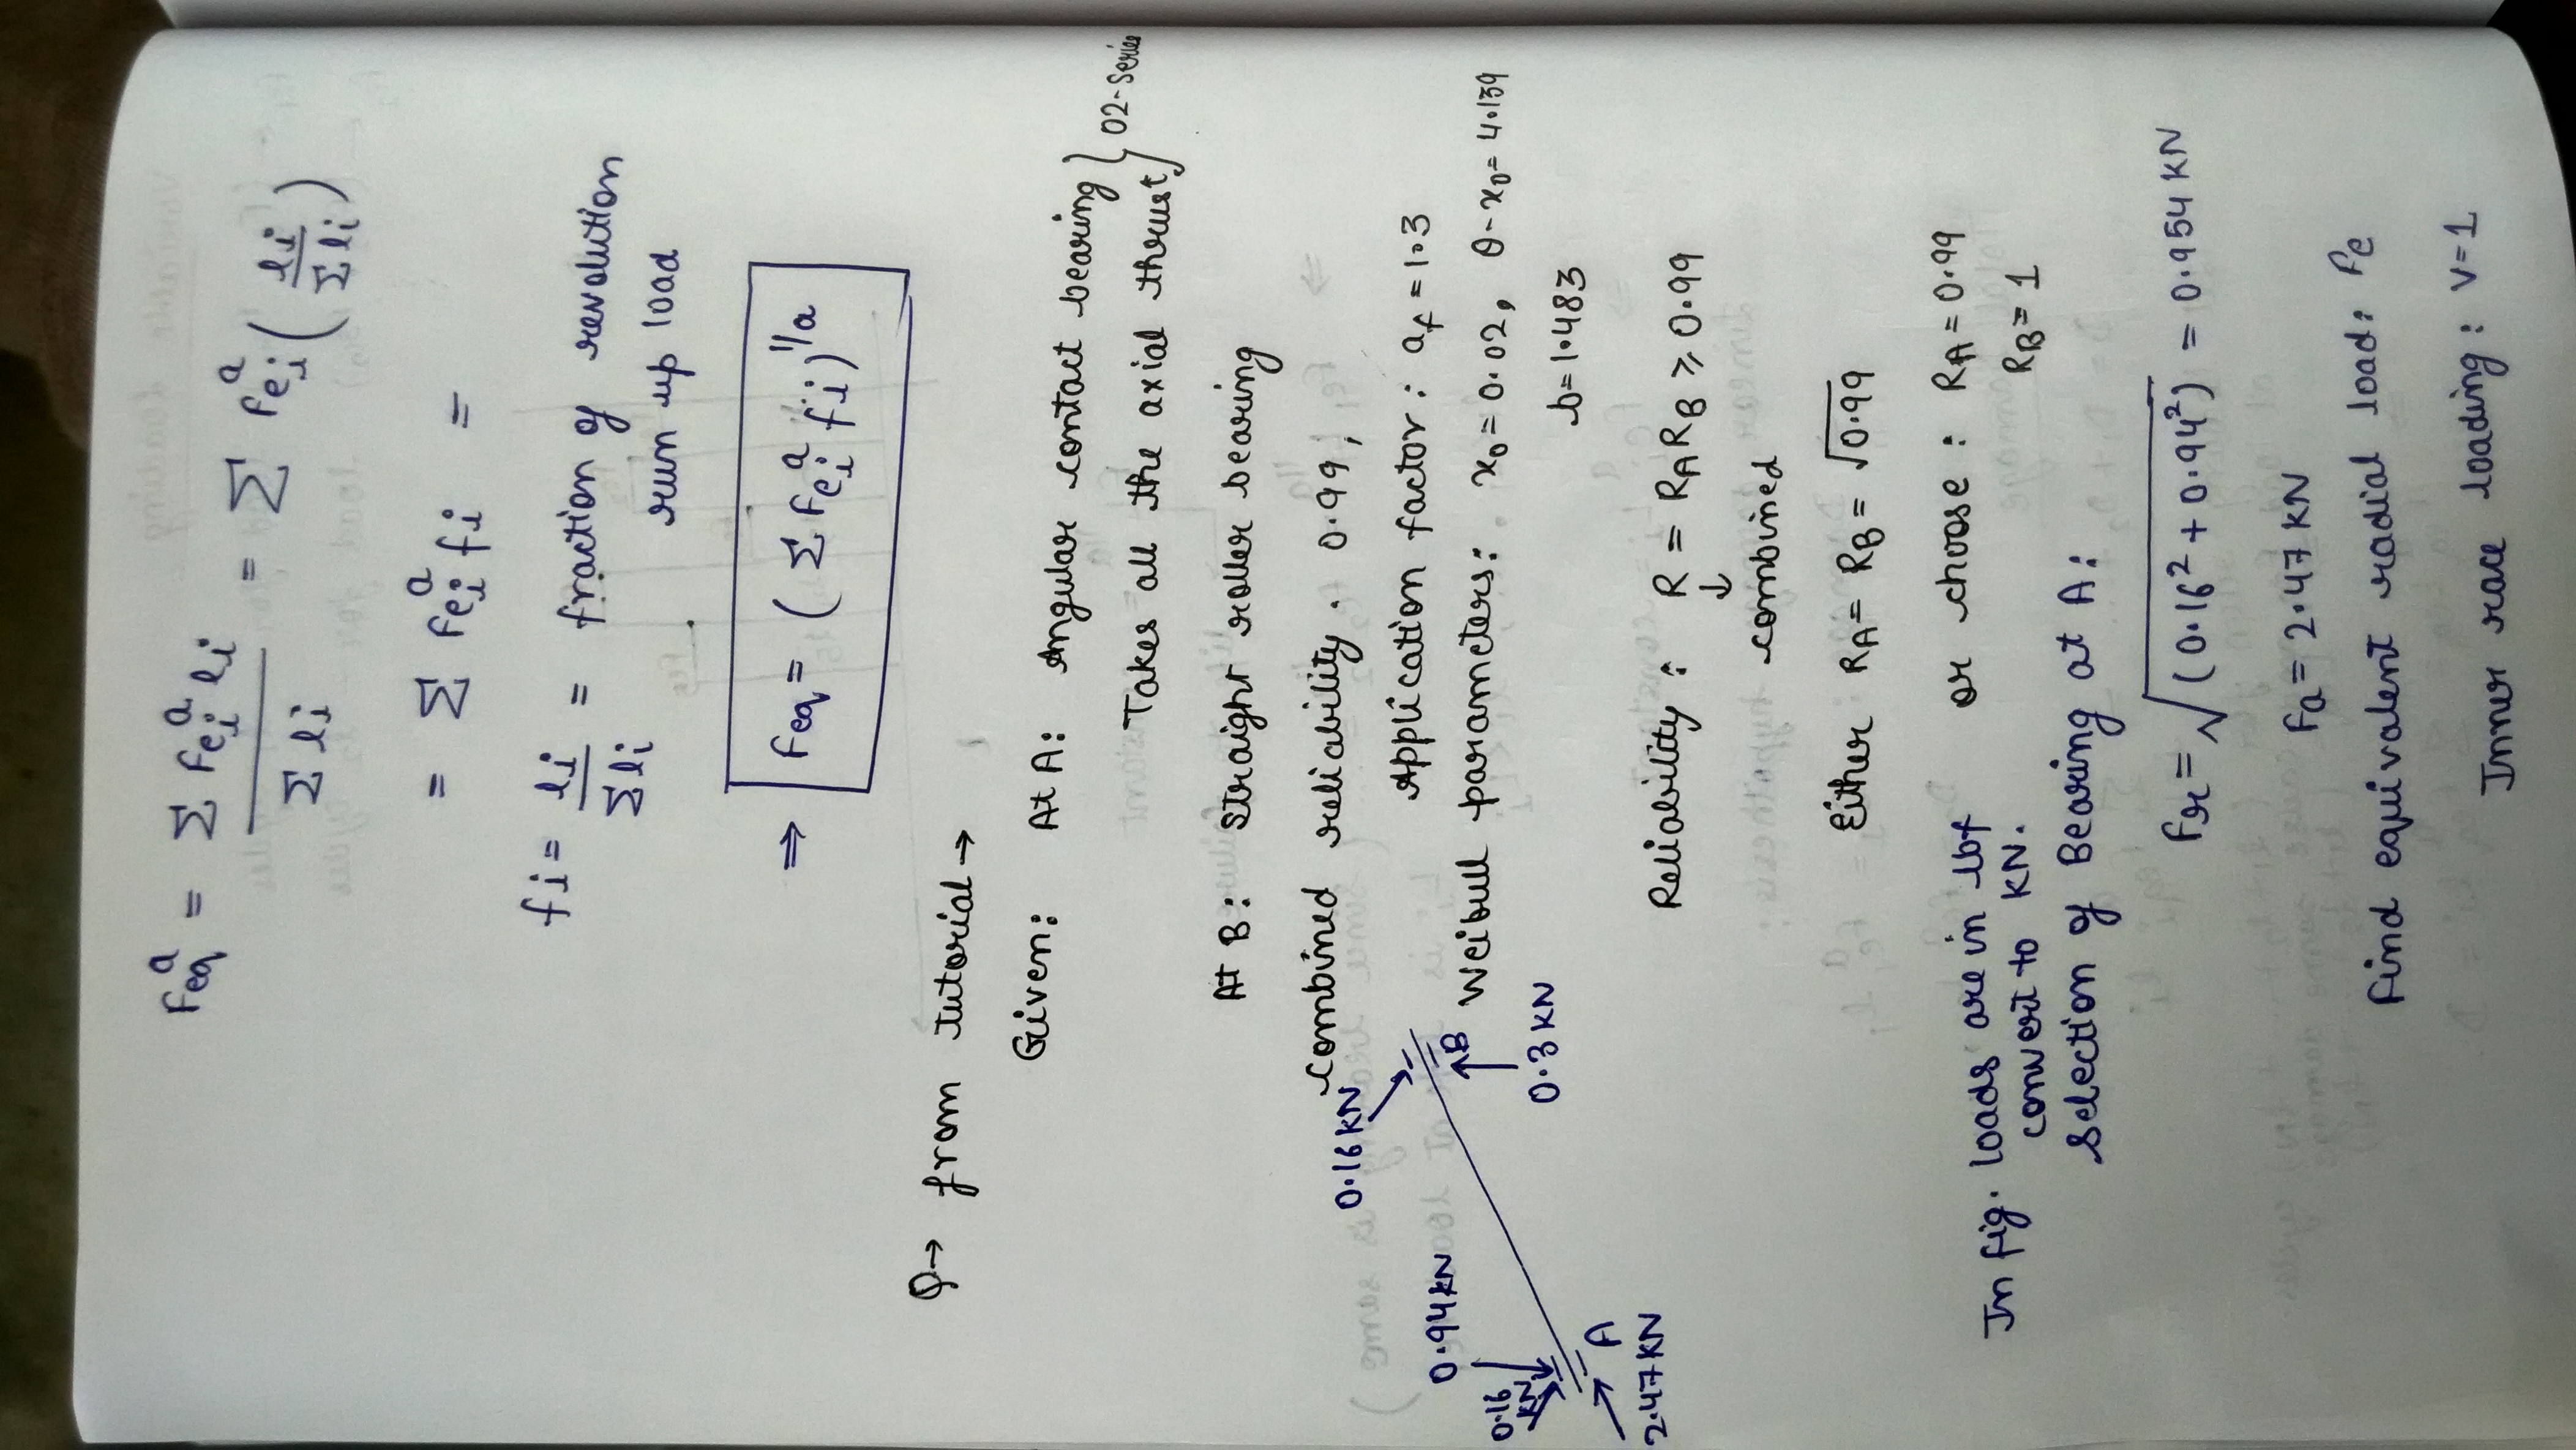 Feq^a = Σ Fei^a li / Σ li = Σ Fei^a (li / Σ li)
= Σ Fei^a fi =
fi = li / Σ li = fraction of revolution
run up load
⇒ Feq = (Σ Fei^a fi)^1/a
Q→ from tutorial →
Given: At A: Angular contact bearing
Takes all the axial thrust } 02-Series
At B: Straight roller bearing
combined reliability. 0.99,
Application factor: af = 1.3
Weibull parameters: x0 = 0.02, θ-x0 = 4.139
b = 1.483
0.16 KN
0.94 KN
0.16 KN
B
0.3 KN
A
2.47 KN
Reliability: R = RA RB ≥ 0.99
↓
combined
Either RA = RB = √0.99
or choose: RA = 0.99
RB = 1
In fig. loads are in lbf
convert to KN.
Selection of Bearing at A:
Fr = √(0.16² + 0.94²) = 0.954 KN
Fa = 2.47 KN
Find equivalent radial load: Fe
Inner race loading: V=1